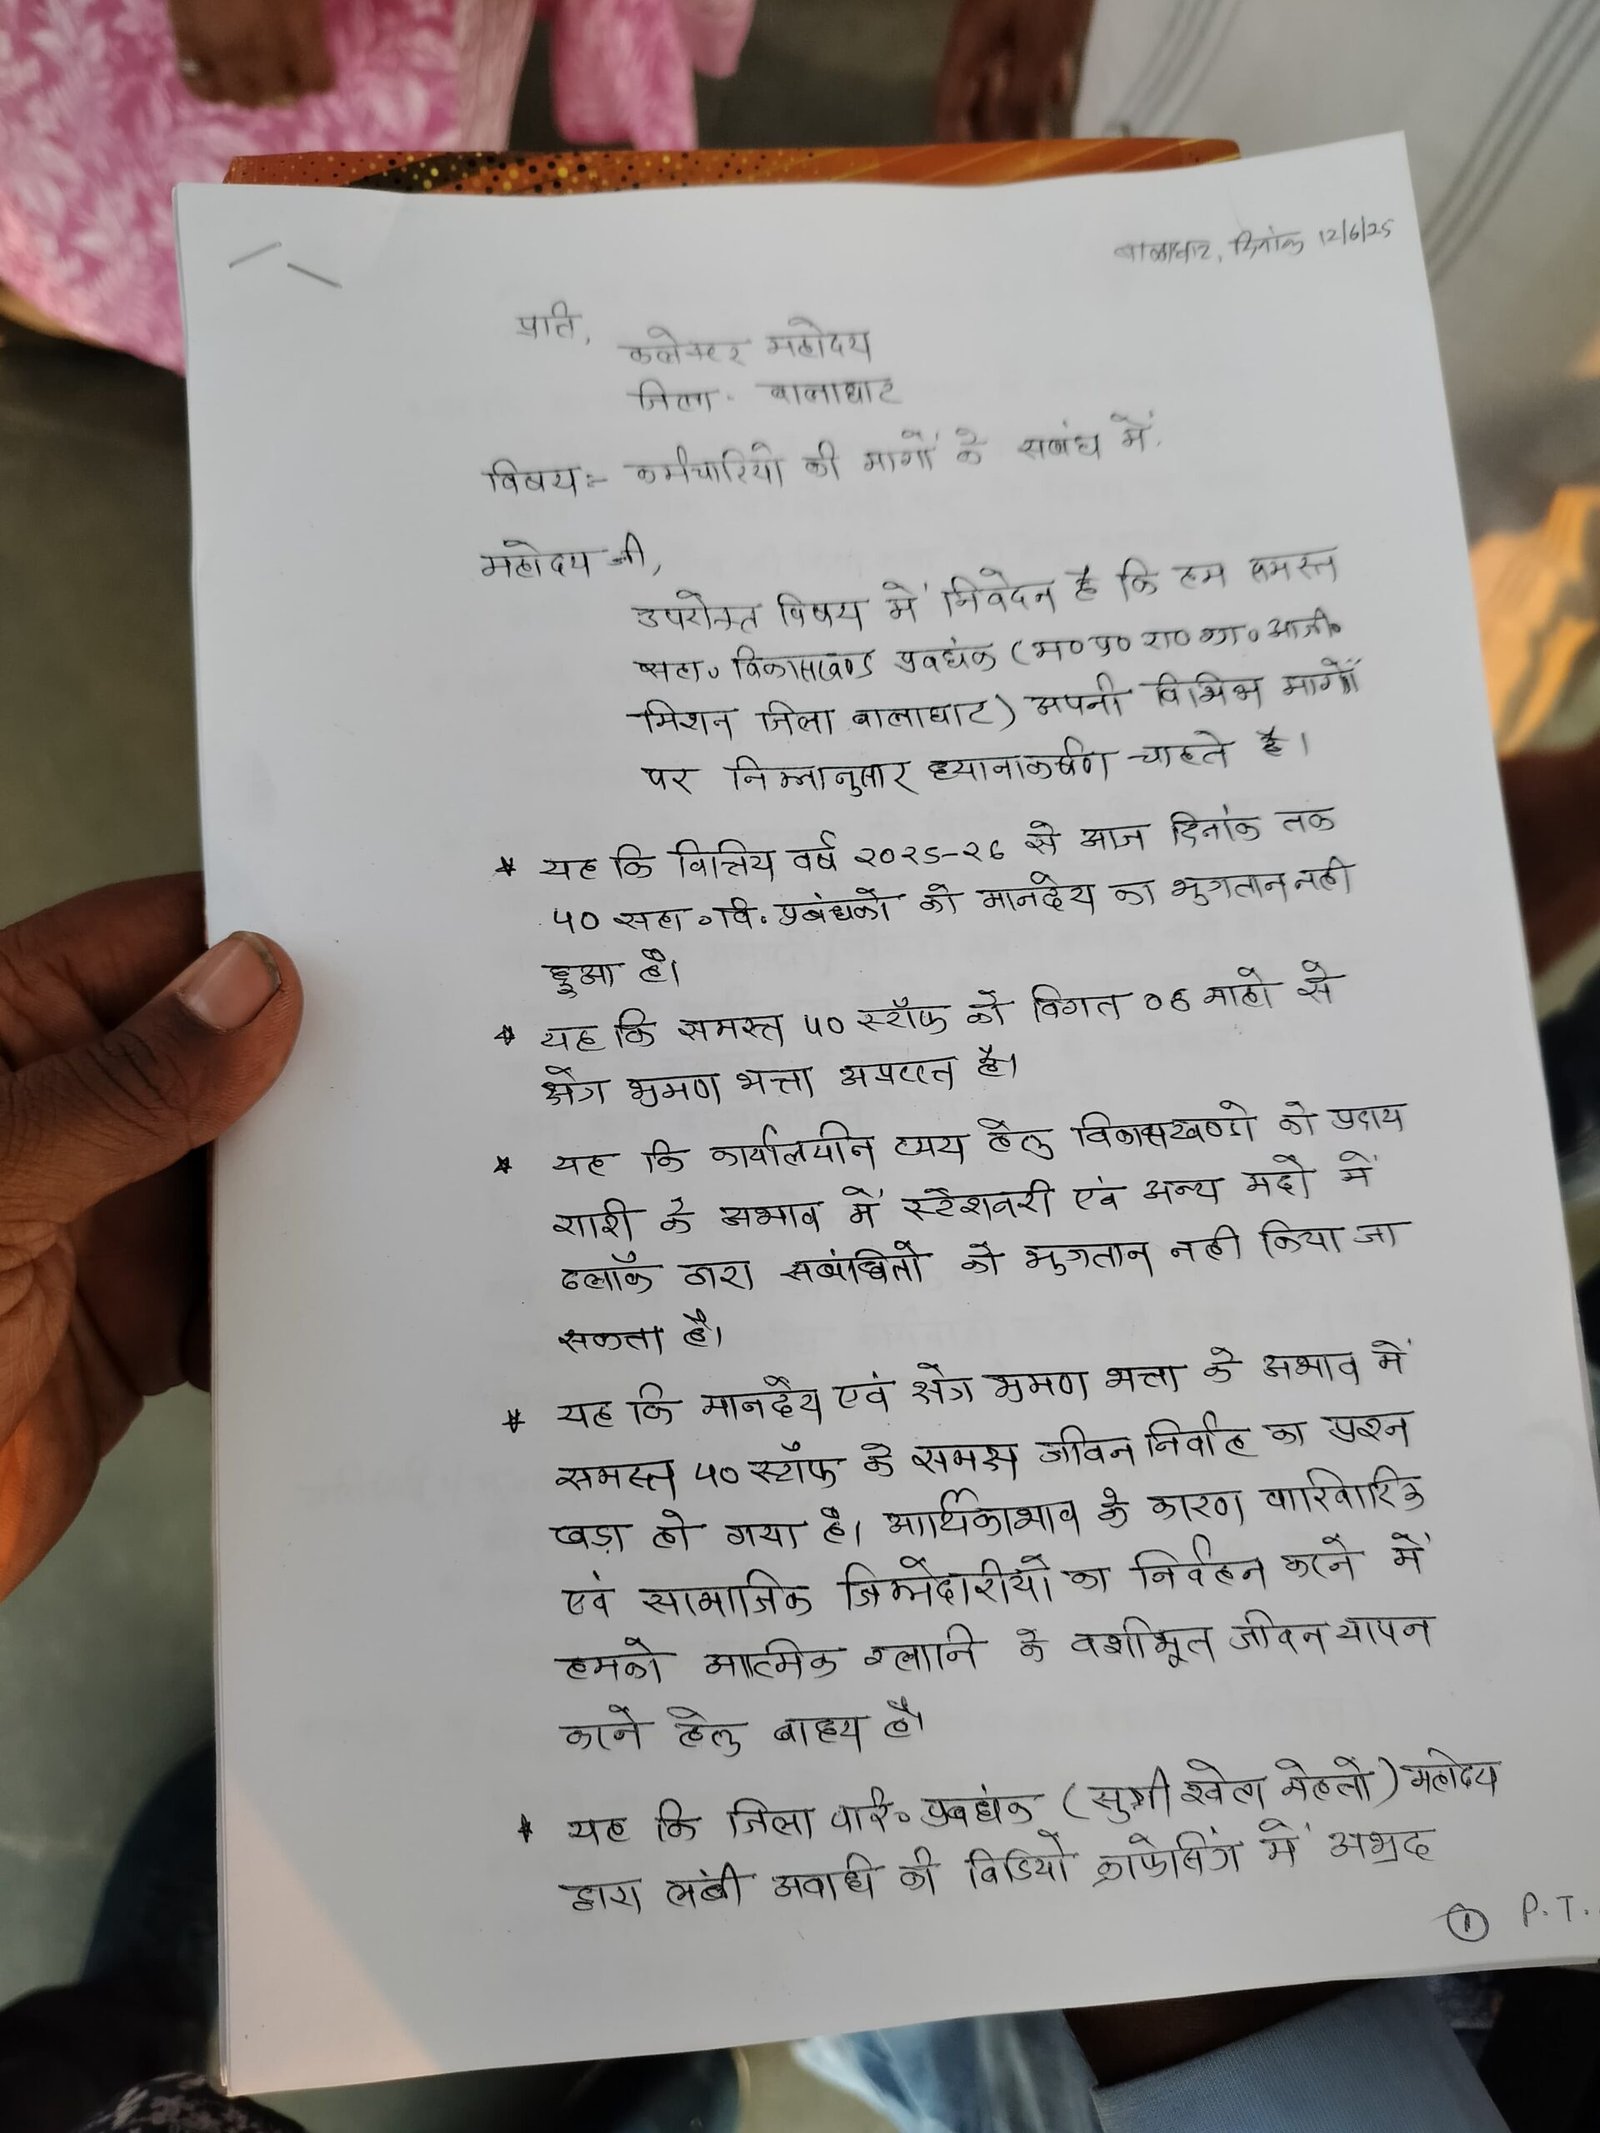 बालाघाट, दिनांक 12/6/25
प्रति,
कलेक्टर महोदय
जिला - बालाघाट
विषय:- कर्मचारियो की मागों के सबंध में.
महोदय जी,
उपरोक्त विषय में निवेदन है कि हम समस्त
सहा० विकासखण्ड प्रबधंक (म०प्र० रा० ग्रा० आजी०
मिशन जिला बालाघाट) अपनी विभिन्न मागों
पर निम्नानुसार ध्यानाकर्षण चाहते है।
* यह कि वित्तिय वर्ष २०२५-२६ से आज दिनांक तक
५० सहा.वि. प्रबंधको को मानदेय का भुगतान नही
हुआ है।
* यह कि समस्त ५० स्टॉफ को विगत ०६ माहो से
क्षेत्र भ्रमण भत्ता अप्राप्त है।
* यह कि कार्यालयीन व्यय हेतु विकासखण्डो को प्रदाय
राशी के अभाव में स्टेशनरी एवं अन्य मदो में
ब्लॉक द्वारा सबंधितो को भुगतान नही किया जा
सकता है।
* यह कि मानदेय एवं क्षेत्र भ्रमण भत्ता के अभाव में
समस्त ५० स्टॉफ के समक्ष जीवन निर्वाह का प्रश्न
खड़ा हो गया है। आर्थिकाभाव के कारण पारिवारिक
एवं सामाजिक जिम्मेदारीयों का निर्वहन करने में
हमको आत्मिक ग्लानि के वशीभूत जीवन यापन
करने हेतु बाध्य है।
* यह कि जिला परि० प्रबधंक (सुश्री श्वेता मेहतो) महोदय
द्वारा लंबी अवधि की विडियो क्रांफेसिंग में अभद्र
① P.T.